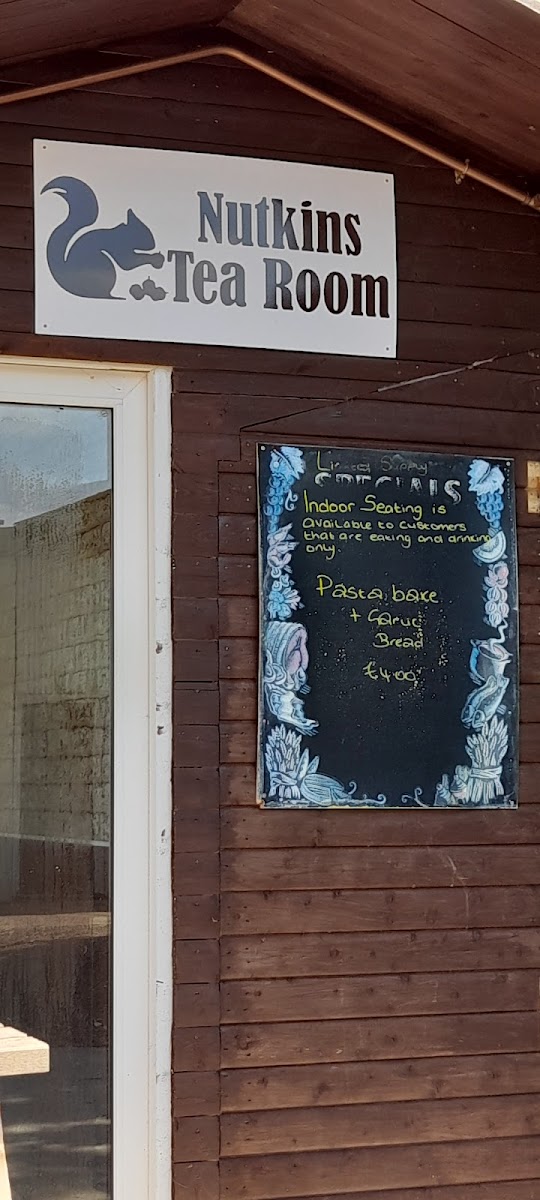 Nutkins
Tea Room
SPECIALS
Indoor Seating is
available to customers
that are eating and drinking
only.
Pasta bake
+ Garlic
Bread
£4.00